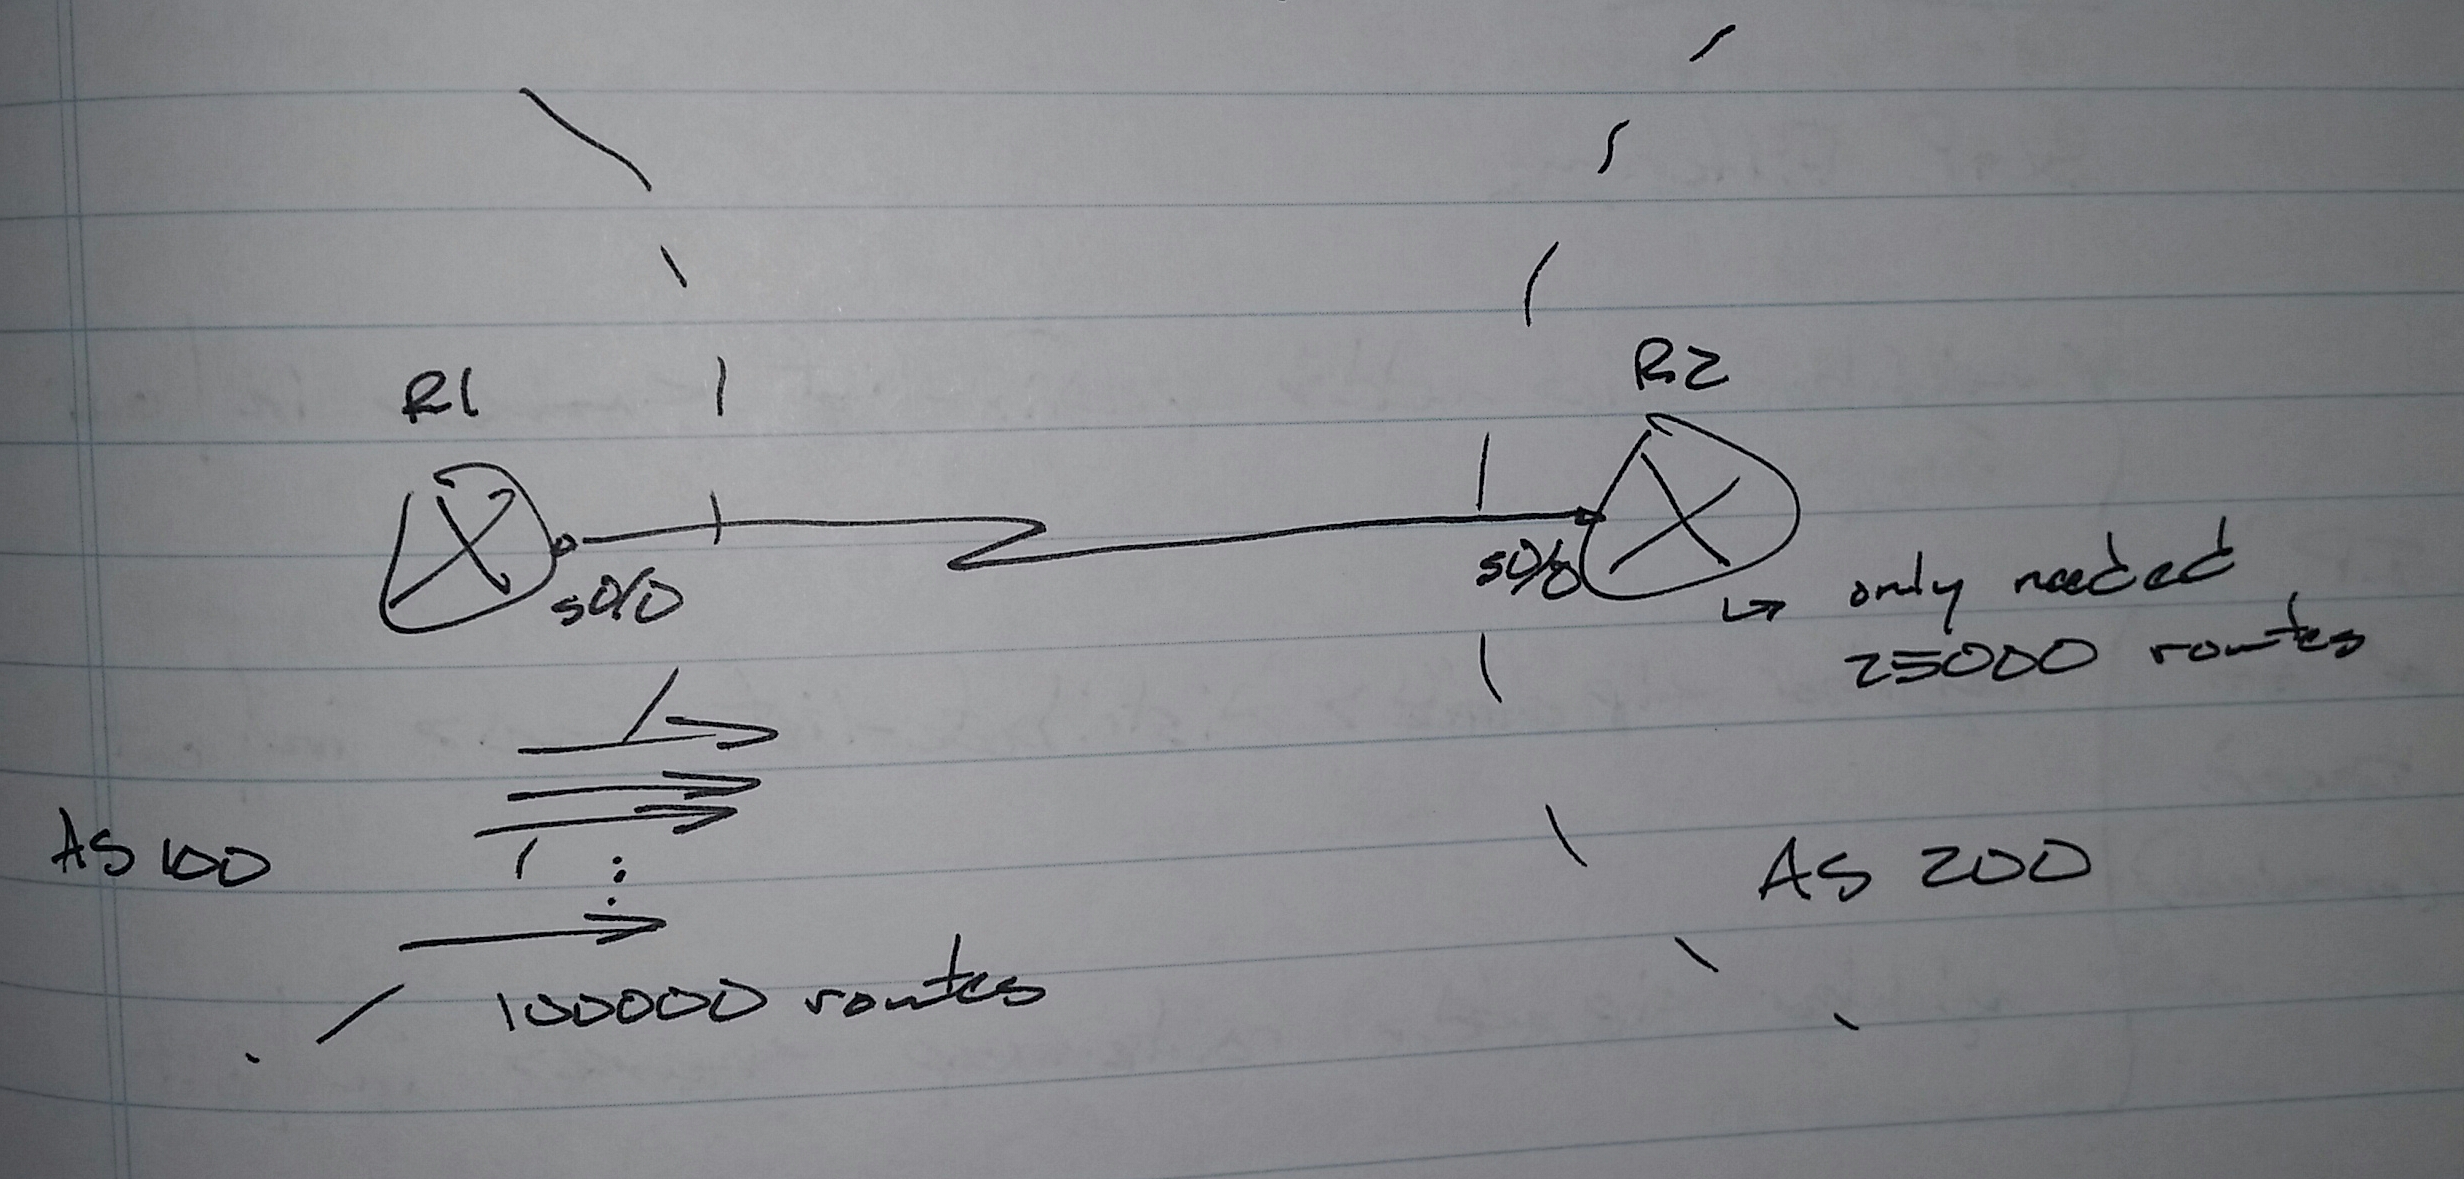 R1
R2
s0/0
s0/0
only needed
25000 routes
AS 100
AS 200
100000 routes